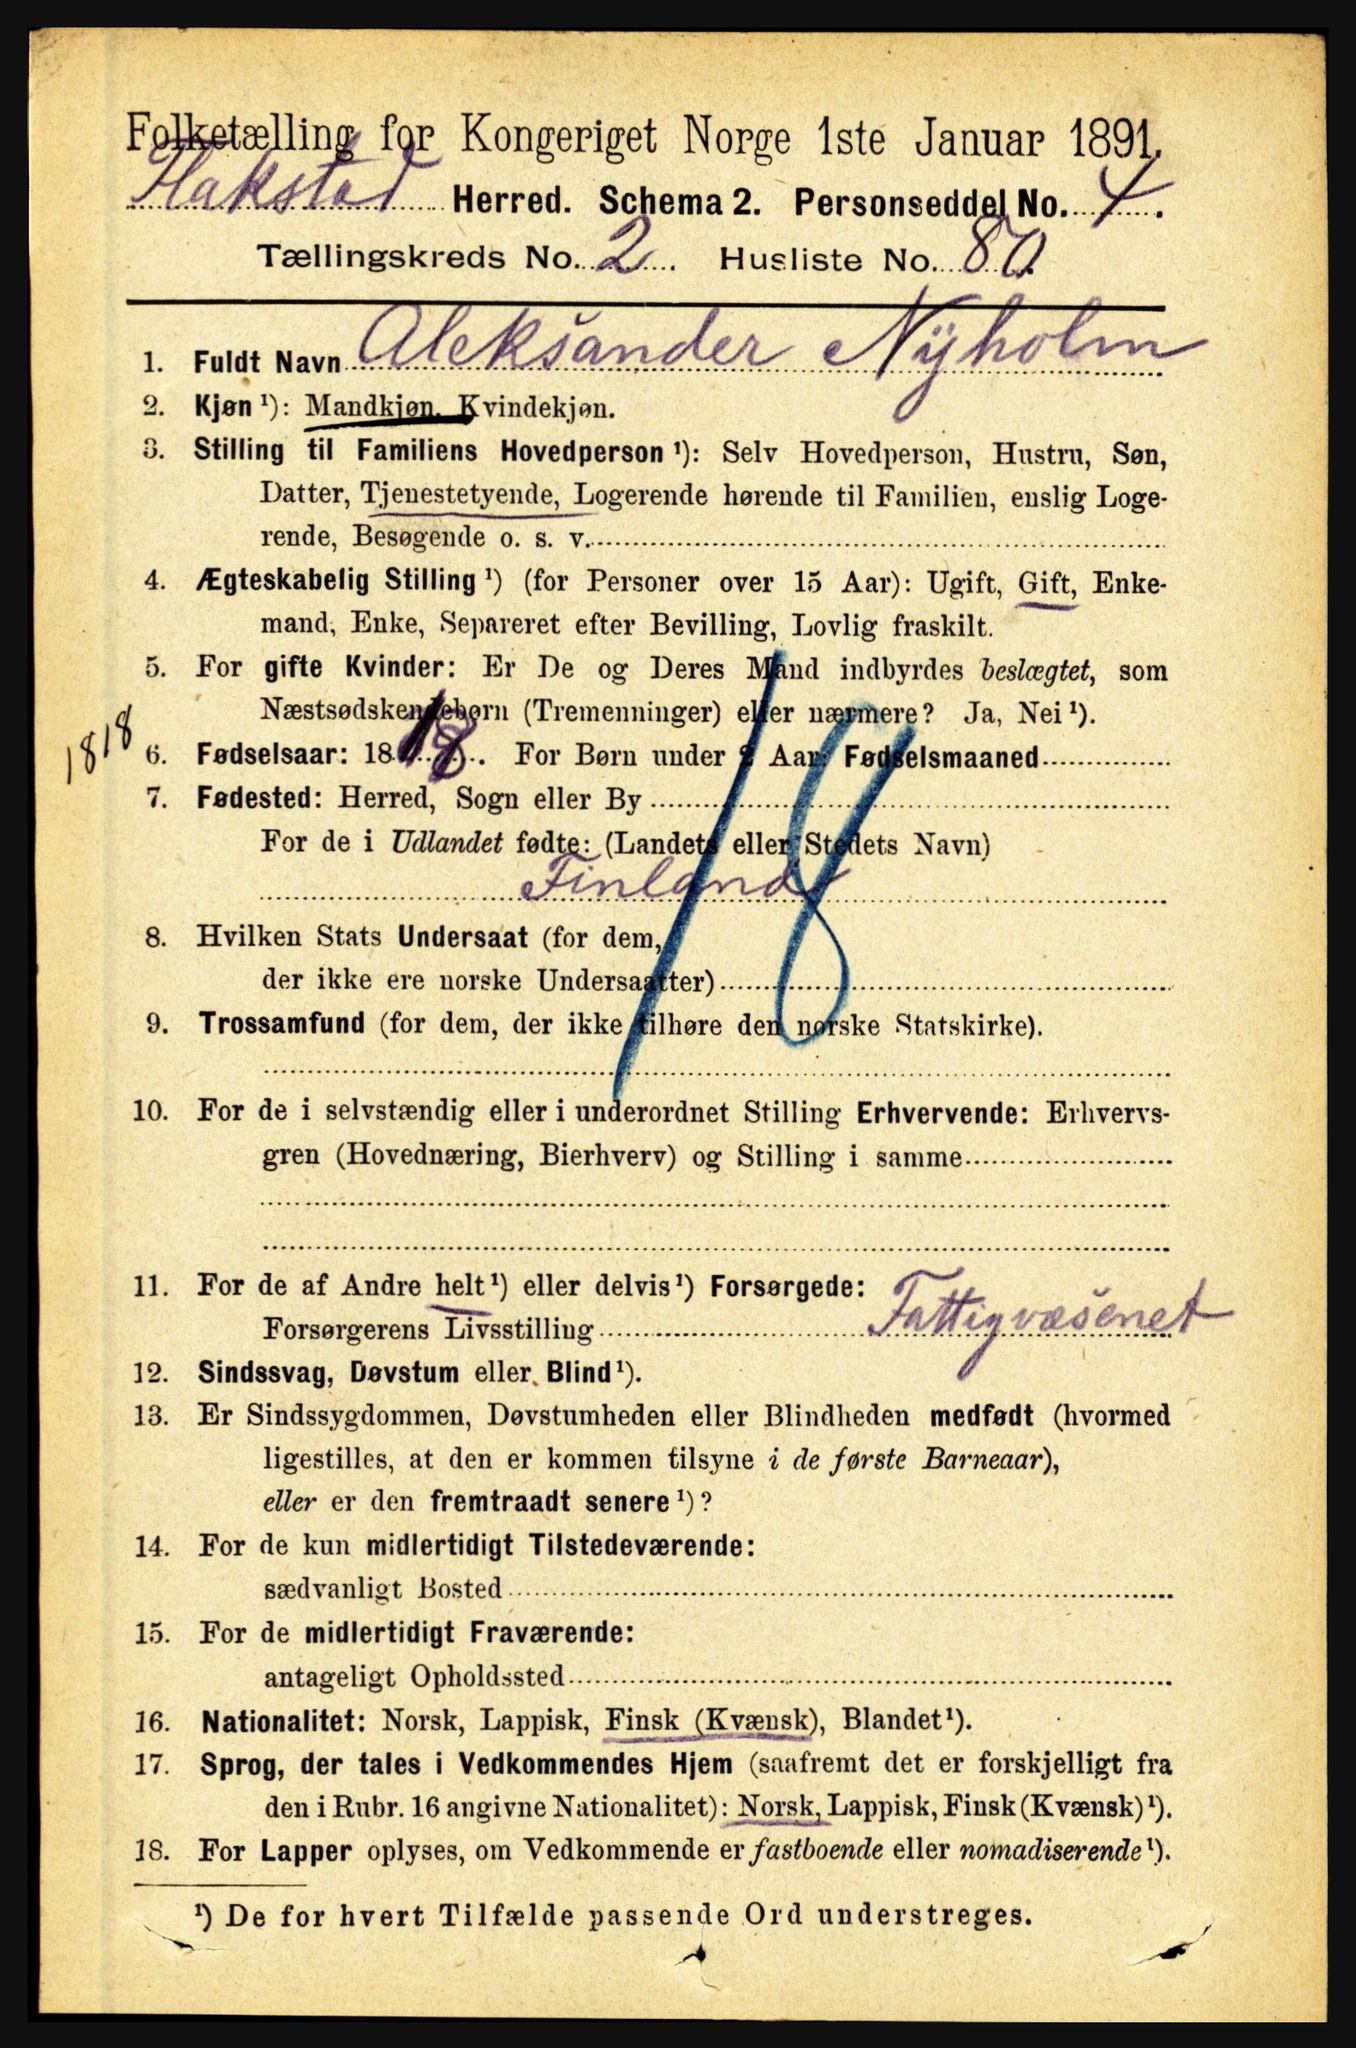 Folketælling for Kongeriget Norge 1ste Januar 1891.
Flakstad Herred. Schema 2. Personseddel No. 4.
Tællingskreds No. 2. Husliste No. 80.
1. Fuldt Navn Aleksander Nyholm
2. Kjøn ¹): Mandkjøn. Kvindekjøn.
3. Stilling til Familiens Hovedperson ¹): Selv Hovedperson, Hustru, Søn,
Datter, Tjenestetyende, Logerende hørende til Familien, enslig Loge-
rende, Besøgende o. s. v.
4. Ægteskabelig Stilling ¹) (for Personer over 15 Aar): Ugift, Gift, Enke-
mand, Enke, Separeret efter Bevilling, Lovlig fraskilt.
5. For gifte Kvinder: Er De og Deres Mand indbyrdes beslægtet, som
Næstsødskendebørn (Tremenninger) eller nærmere? Ja, Nei ¹).
1818
6. Fødselsaar: 1818. For Børn under 2 Aar: Fødselsmaaned
18
7. Fødested: Herred, Sogn eller By
For de i Udlandet fødte: (Landets eller Stedets Navn)
Finland
8. Hvilken Stats Undersaat (for dem,
der ikke ere norske Undersaatter)
9. Trossamfund (for dem, der ikke tilhøre den norske Statskirke).
10. For de i selvstændig eller i underordnet Stilling Erhvervende: Erhvervs-
gren (Hovednæring, Bierhverv) og Stilling i samme
11. For de af Andre helt ¹) eller delvis ¹) Forsørgede:
Forsørgerens Livsstilling Fattigvæsenet
12. Sindssvag, Døvstum eller Blind ¹).
13. Er Sindssygdommen, Døvstumheden eller Blindheden medfødt (hvormed
ligestilles, at den er kommen tilsyne i de første Barneaar),
eller er den fremtraadt senere ¹)?
14. For de kun midlertidigt Tilstedeværende:
sædvanligt Bosted
15. For de midlertidigt Fraværende:
antageligt Opholdssted
16. Nationalitet: Norsk, Lappisk, Finsk (Kvænsk), Blandet ¹).
17. Sprog, der tales i Vedkommendes Hjem (saafremt det er forskjelligt fra
den i Rubr. 16 angivne Nationalitet): Norsk, Lappisk, Finsk (Kvænsk) ¹).
18. For Lapper oplyses, om Vedkommende er fastboende eller nomadiserende ¹).
¹) De for hvert Tilfælde passende Ord understreges.